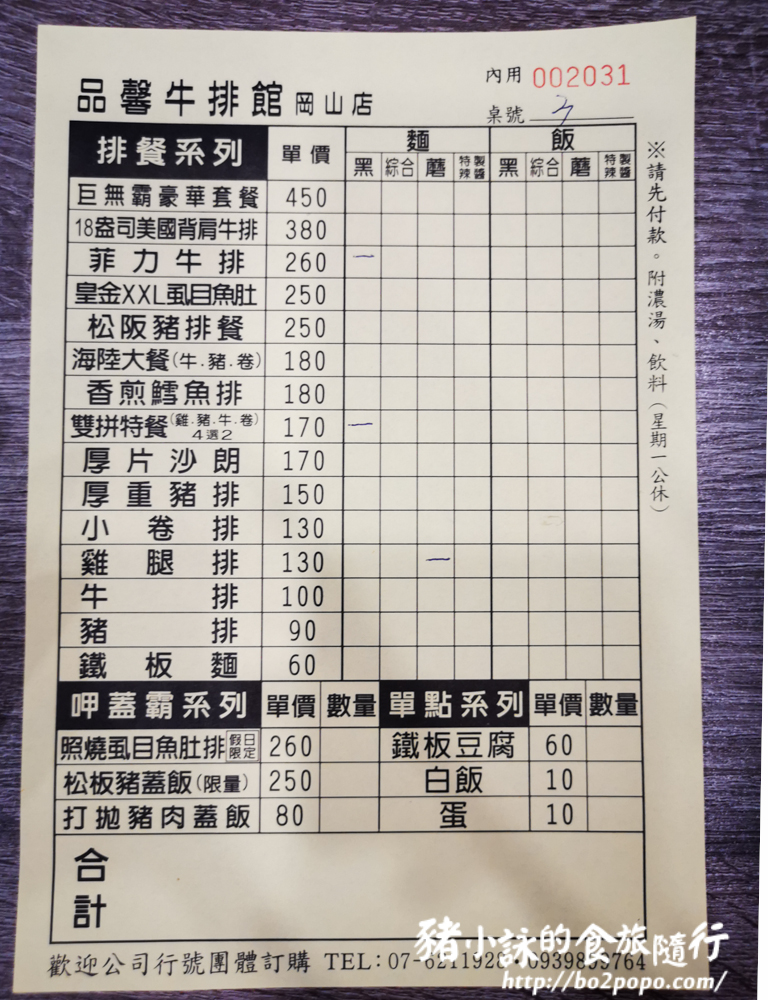 內用 002031
品馨牛排館 岡山店
桌號
排餐系列 單價 麵 飯
黑 綜合 蘑 特製辣醬 黑 綜合 蘑 特製辣醬
巨無霸豪華套餐 450
18盎司美國背肩牛排 380
菲力牛排 260 一
皇金XXL虱目魚肚 250
松阪豬排餐 250
海陸大餐(牛.豬.卷) 180
香煎鱈魚排 180
雙拼特餐(雞.豬.牛.卷)4選2 170 一
厚片沙朗 170
厚重豬排 150
小卷排 130
雞腿排 130 一
牛排 100
豬排 90
鐵板麵 60
呷蓋霸系列 單價 數量 單點系列 單價 數量
照燒虱目魚肚排 假日限定 260 鐵板豆腐 60
松板豬蓋飯(限量) 250 白飯 10
打拋豬肉蓋飯 80 蛋 10
合計
※請先付款。附濃湯、飲料(星期一公休)
歡迎公司行號團體訂購 TEL:07-6211928
豬小詠的食旅隨行
http://bo2popo.com/